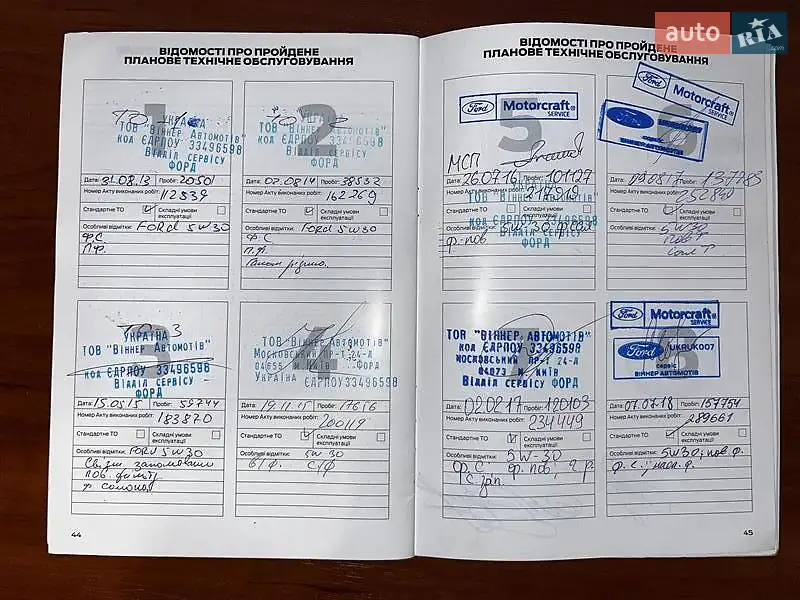 auto RIA .com
ВІДОМОСТІ ПРО ПРОЙДЕНЕ
ПЛАНОВЕ ТЕХНІЧНЕ ОБСЛУГОВУВАННЯ
1
УКРАЇНА
ТОВ "ВІННЕР АВТОМОТІВ"
код ЄДРПОУ 33496598
Відділ сервісу
ФОРД
Дата: 21.08.13 Пробіг: 20501
Номер Акту виконаних робіт:
112839
Стандартне ТО Складні умови експлуатації
Особливі відмітки: FORD 5W30
Ф.С
П.Ф.
2
ТОВ "ВІННЕР АВТОМОТІВ"
код ЄДРПОУ 33496598
Відділ сервісу
ФОРД
Дата: 02.0814 Пробіг: 38532
Номер Акту виконаних робіт:
162269
Стандартне ТО Складні умови експлуатації
Особливі відмітки: FORD 5W30
Ф.С
П.Ф.
3
ТО 3
УКРАЇНА
ТОВ "ВІННЕР АВТОМОТІВ"
код ЄДРПОУ 33496598
Відділ сервісу
ФОРД
Дата: 15.05.15 Пробіг: 59744
Номер Акту виконаних робіт:
183870
Стандартне ТО Складні умови експлуатації
Особливі відмітки: FORD 5W30
4
ТОВ "ВІННЕР АВТОМОТІВ"
Московський пр-т 24-А
Україна ЄДРПОУ 33496598
Дата: 19.11.15 Пробіг:
Номер Акту виконаних робіт:
200119
Стандартне ТО Складні умови експлуатації
Особливі відмітки: 5W30
С/Ф
44
ВІДОМОСТІ ПРО ПРОЙДЕНЕ
ПЛАНОВЕ ТЕХНІЧНЕ ОБСЛУГОВУВАННЯ
5
Ford Motorcraft SERVICE
МСП
Дата: 26.07.16 Пробіг: 101127
Номер Акту виконаних робіт:
ТОВ "ВІННЕР АВТОМОТІВ"
Стандартне ТО Складні умови експлуатації
код ЄДРПОУ 33496598
Особливі відмітки: 5W30
Відділ сервісу
ф-пов
ФОРД
6
Ford Motorcraft SERVICE
Ford
ВІННЕР АВТОМОТІВ
Дата: Пробіг: 137783
Номер Акту виконаних робіт:
Стандартне ТО Складні умови експлуатації
Особливі відмітки: 5W30
7
ТОВ "ВІННЕР АВТОМОТІВ"
код ЄДРПОУ 33496598
Московський пр-т 24-А
04073 м. Київ
Відділ сервісу ФОРД
Дата: 02.0217 Пробіг: 120103
Номер Акту виконаних робіт:
234449
Стандартне ТО Складні умови експлуатації
Особливі відмітки: 5W-30
Ф.С. ф.пов,
8
Ford Motorcraft SERVICE
Ford UKRUK007
СЕРВІС
ВІННЕР АВТОМОТІВ
Дата: 07.07.18 Пробіг: 157754
Номер Акту виконаних робіт:
289661
Стандартне ТО Складні умови експлуатації
Особливі відмітки: 5W30, пов.ф.
ф.с.; масл.ф.
45